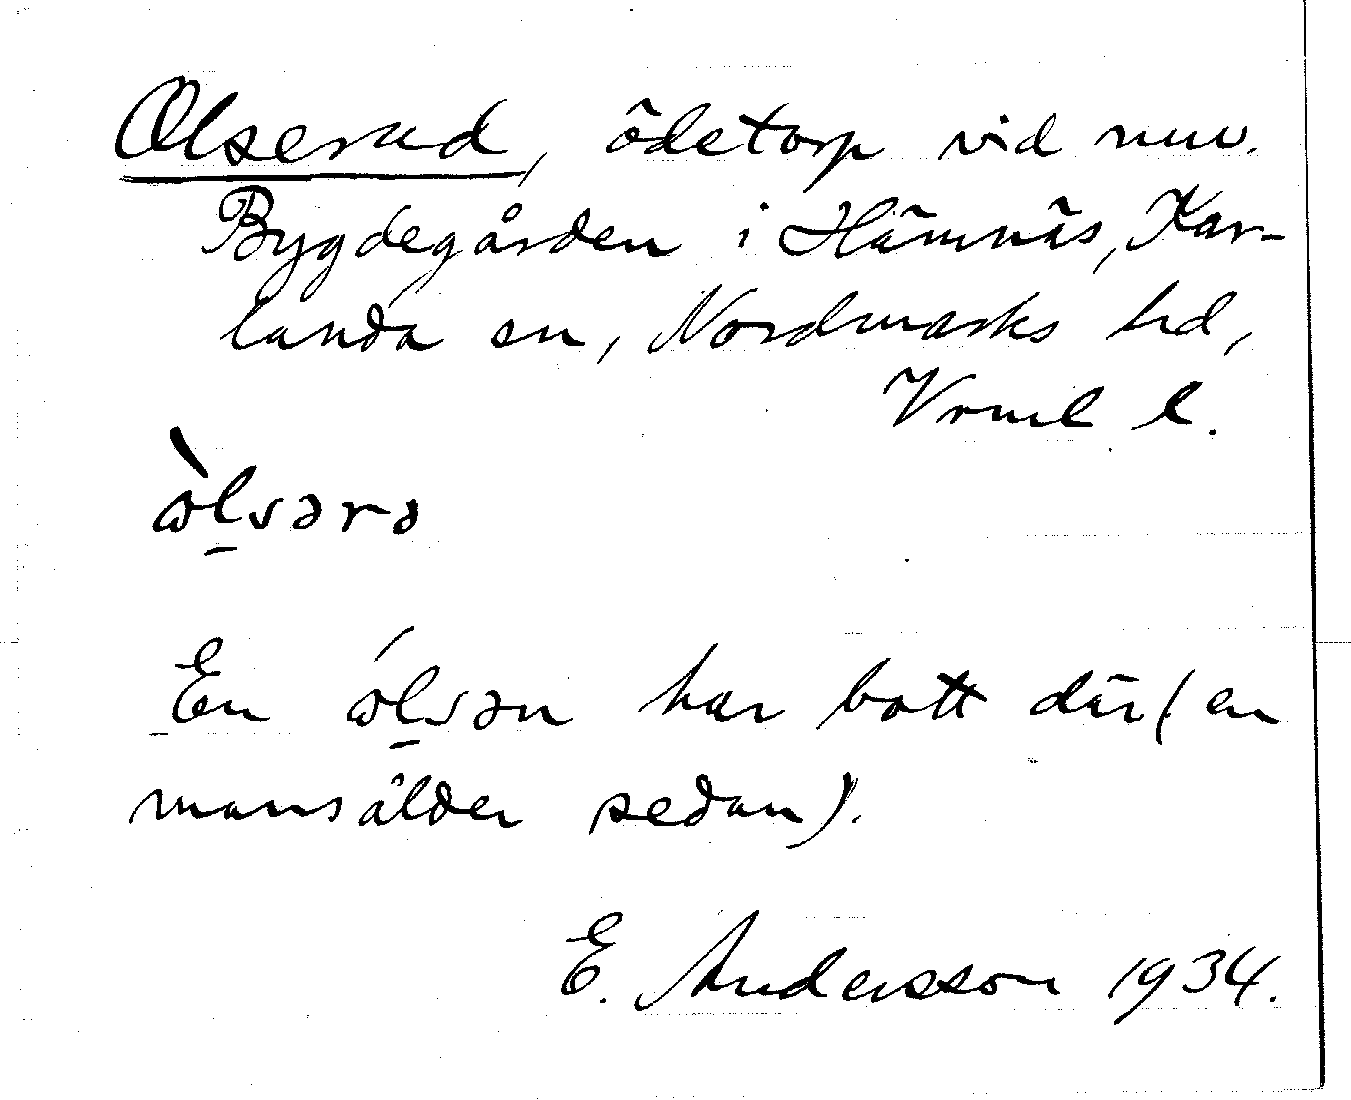 Olserud, ödetorp vid nuv.
Bygdegården i Hämnäs, Kar-
landa sn, Nordmarks hd,
Vrml l.
ὼlsərə
En ώlsən har bott där (en
mansålder sedan).
E. Andersson 1934.